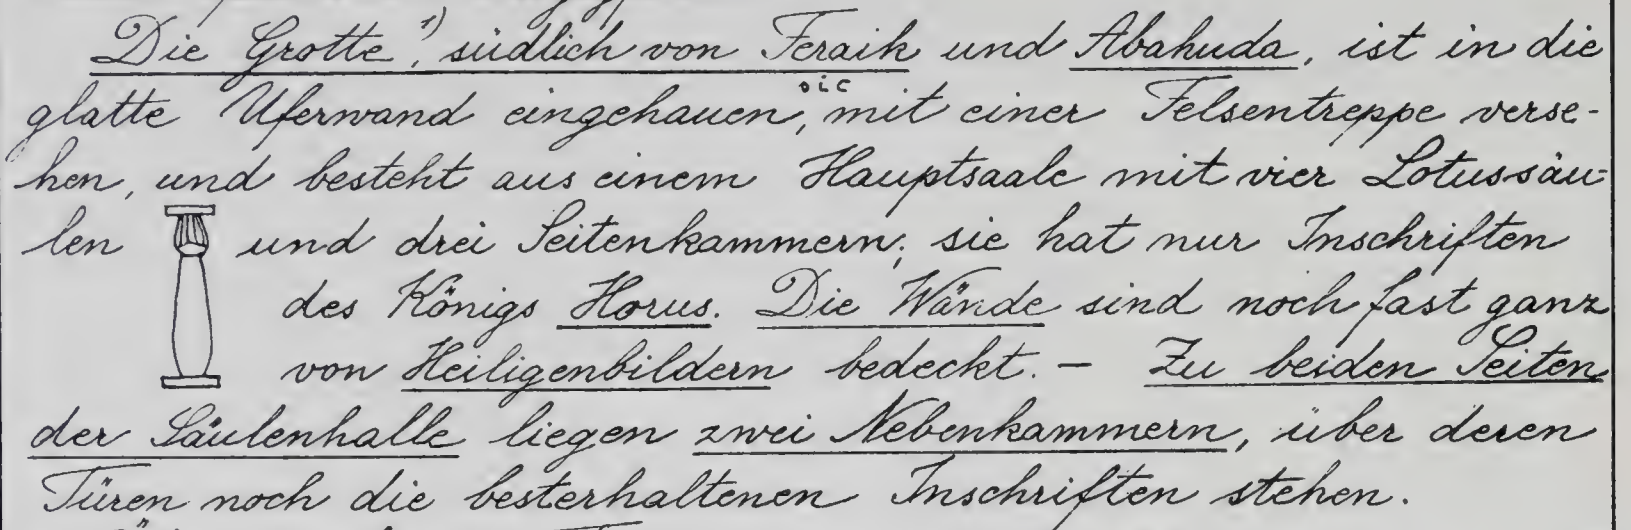 Die Grotte¹⁾, südlich von Feraik und Abahuda, ist in die
glatte Uferwand eingehauen, sic mit einer Felsentreppe verse-
hen, und besteht aus einem Hauptsaale mit vier Lotussäu-
len und drei Seitenkammern; sie hat nur Inschriften
des Königs Horus. Die Wände sind noch fast ganz
von Heiligenbildern bedeckt. – Zu beiden Seiten
der Säulenhalle liegen zwei Nebenkammern, über deren
Türen noch die besterhaltenen Inschriften stehen.